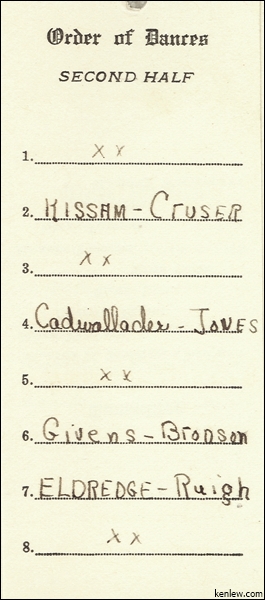 Order of Dances
SECOND HALF
1. xx
2. KISSAM - CRUSER
3. xx
4. Cadwallader - JONES
5. xx
6. Givens - Bronson
7. ELDREDGE - Ruigh
8. xx
kenlew.com